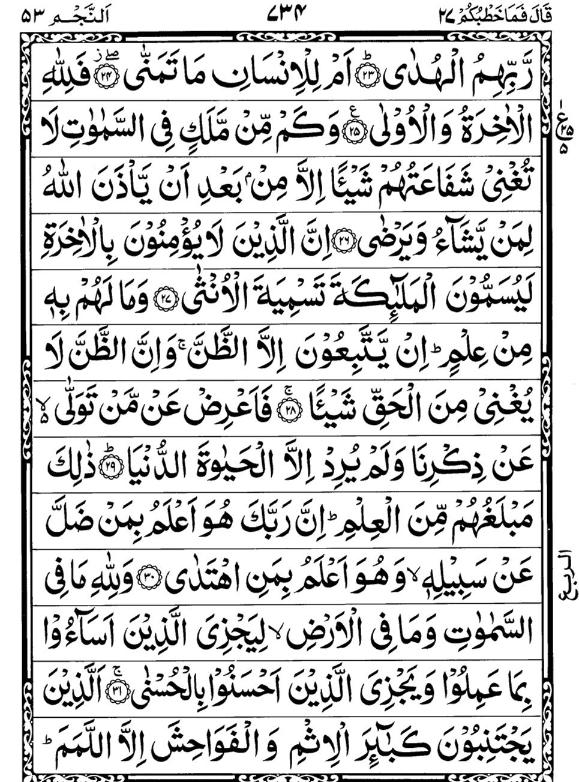 قَالَ فَمَا خَطْبُكُمْ ٢٧ ٧٣٤ اَلنَّجْم ٥٣
رَّبِّهِمُ الْهُدٰى ؕ‏ ﴿۲۳﴾ اَمْ لِلْاِنْسَانِ مَا تَمَنّٰى ۖ‏ ﴿۲۴﴾ فَلِلّٰهِ
الْاٰخِرَةُ وَالْاُوْلٰى‏ ﴿۲۵﴾ ع وَكَمْ مِّنْ مَّلَكٍ فِى السَّمٰوٰتِ لَا
تُغْنِىْ شَفَاعَتُهُمْ شَيْـًٔا اِلَّا مِنْۢ بَعْدِ اَنْ يَّاْذَنَ اللّٰهُ
لِمَنْ يَّشَآءُ وَيَرْضٰى‏ ﴿۲۶﴾ اِنَّ الَّذِيْنَ لَا يُؤْمِنُوْنَ بِالْاٰخِرَةِ
لَيُسَمُّوْنَ الْمَلٰٓئِكَةَ تَسْمِيَةَ الْاُنْثٰى‏ ﴿۲۷﴾ وَمَا لَهُمْ بِهٖ
مِنْ عِلْمٍ ؕ اِنْ يَّتَّبِعُوْنَ اِلَّا الظَّنَّ ۚ وَاِنَّ الظَّنَّ لَا
يُغْنِىْ مِنَ الْحَقِّ شَيْـًٔا ۚ‏ ﴿۲۸﴾ فَاَعْرِضْ عَنْ مَّنْ تَوَلّٰى ۙ
عَنْ ذِكْرِنَا وَلَمْ يُرِدْ اِلَّا الْحَيٰوةَ الدُّنْيَا ؕ‏ ﴿۲۹﴾ ذٰلِكَ
مَبْلَغُهُمْ مِّنَ الْعِلْمِ ؕ اِنَّ رَبَّكَ هُوَ اَعْلَمُ بِمَنْ ضَلَّ
عَنْ سَبِيْلِهٖ ۙ وَهُوَ اَعْلَمُ بِمَنِ اهْتَدٰى‏ ﴿۳۰﴾ وَلِلّٰهِ مَا فِى
الربع
السَّمٰوٰتِ وَمَا فِى الْاَرْضِ ۙ لِيَجْزِىَ الَّذِيْنَ اَسَآءُوْا
بِمَا عَمِلُوْا وَيَجْزِىَ الَّذِيْنَ اَحْسَنُوْا بِالْحُسْنٰى ۚ‏ ﴿۳۱﴾ اَلَّذِيْنَ
يَجْتَنِبُوْنَ كَبٰٓئِرَ الْاِثْمِ وَالْفَوَاحِشَ اِلَّا اللَّمَمَ ؕ